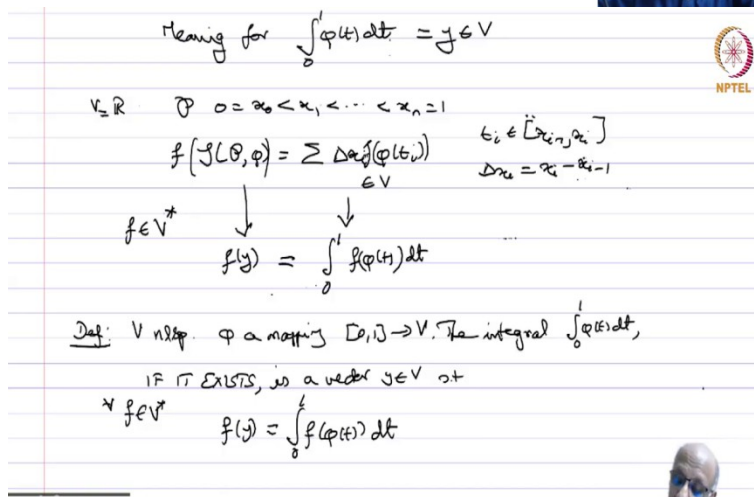 Meaning for ∫₀¹ φ(t)dt = y ∈ V
NPTEL
V=ℝ 𝒫 0 = x₀ < x₁ < ⋯ < xₙ = 1
f(𝒮(𝒫,φ)) = Σ Δxᵢ f(φ(tᵢ)) tᵢ ∈ [xᵢ₋₁, xᵢ]
∈ V Δxᵢ = xᵢ - xᵢ₋₁
f ∈ V*
f(y) = ∫₀¹ f(φ(t)) dt
Def: V nlsp. φ a mapping [0,1] → V. The integral ∫₀¹ φ(t)dt,
IF IT EXISTS, is a vector y ∈ V s.t
∀ f ∈ V* f(y) = ∫₀¹ f(φ(t)) dt